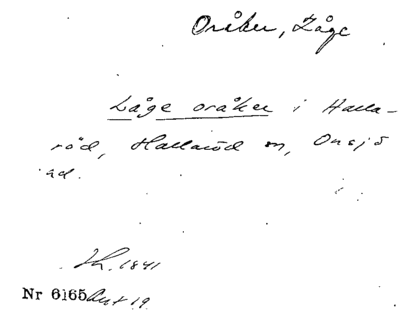 Oråker, Låge
Låge oråker i Halla-
röd, Hallaröd sn, Onsjö
hd.
Sk. 1841
Nr 6165 Akt 19